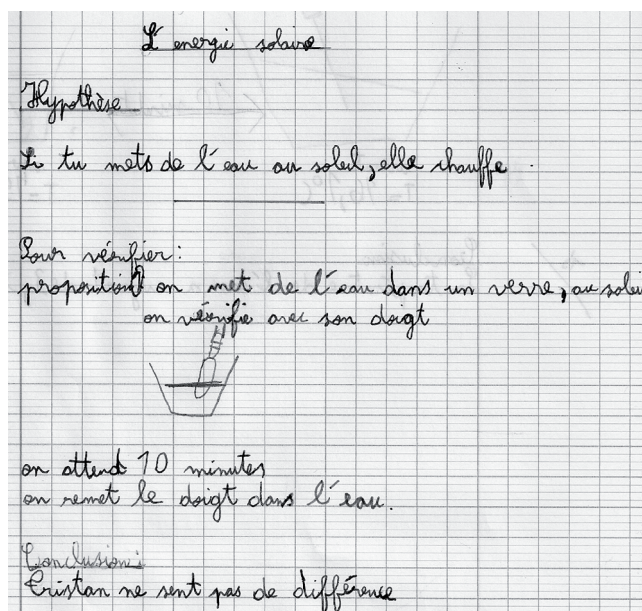 L'energie solaire
Hypothèse
Si tu mets de l'eau au soleil, elle chauffe.
Pour vérifier:
proposition 1 on met de l'eau dans un verre, au solei
on vérifie avec son doigt
on attend 10 minutes
on remet le doigt dans l'eau.
Conclusion:
Tristan ne sent pas de différence